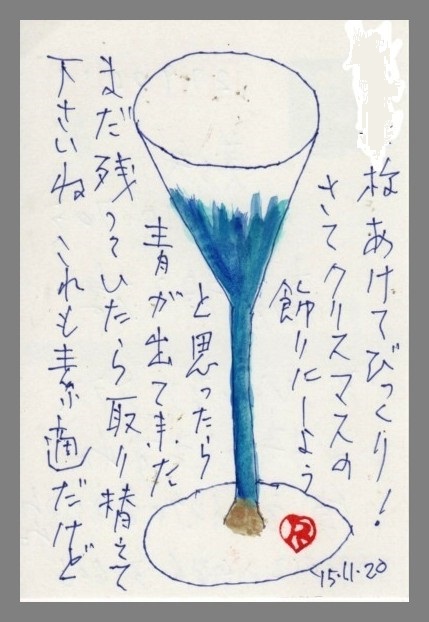 枚あけてびっくり!
さてクリスマスの
飾りにしよう
と思ったら
青が出てきた
まだ残っていたら取り替えて
下さいね これも素適だけど
15.11.20
R